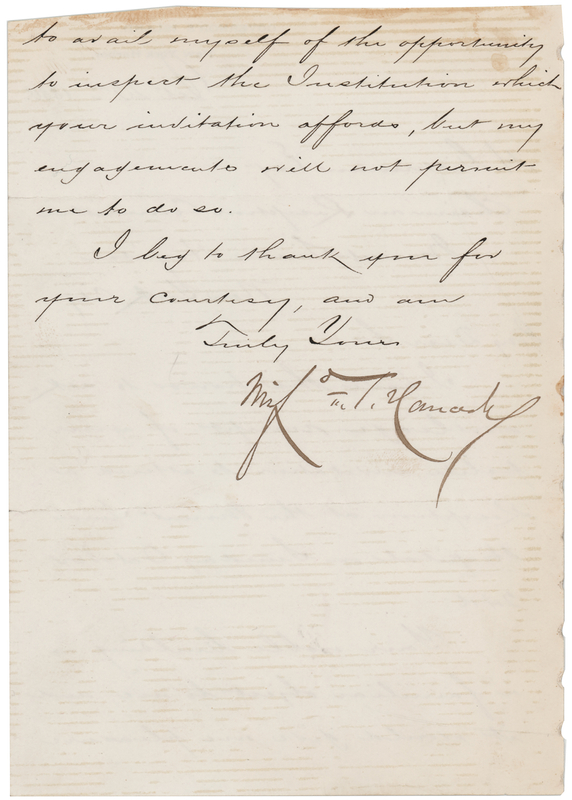 to avail myself of the opportunity
to inspect the Institution which
your invitation affords, but my
engagements will not permit
me to do so.
I beg to thank you for
your courtesy, and am
Truly Yours
Winf'd S. Hancock